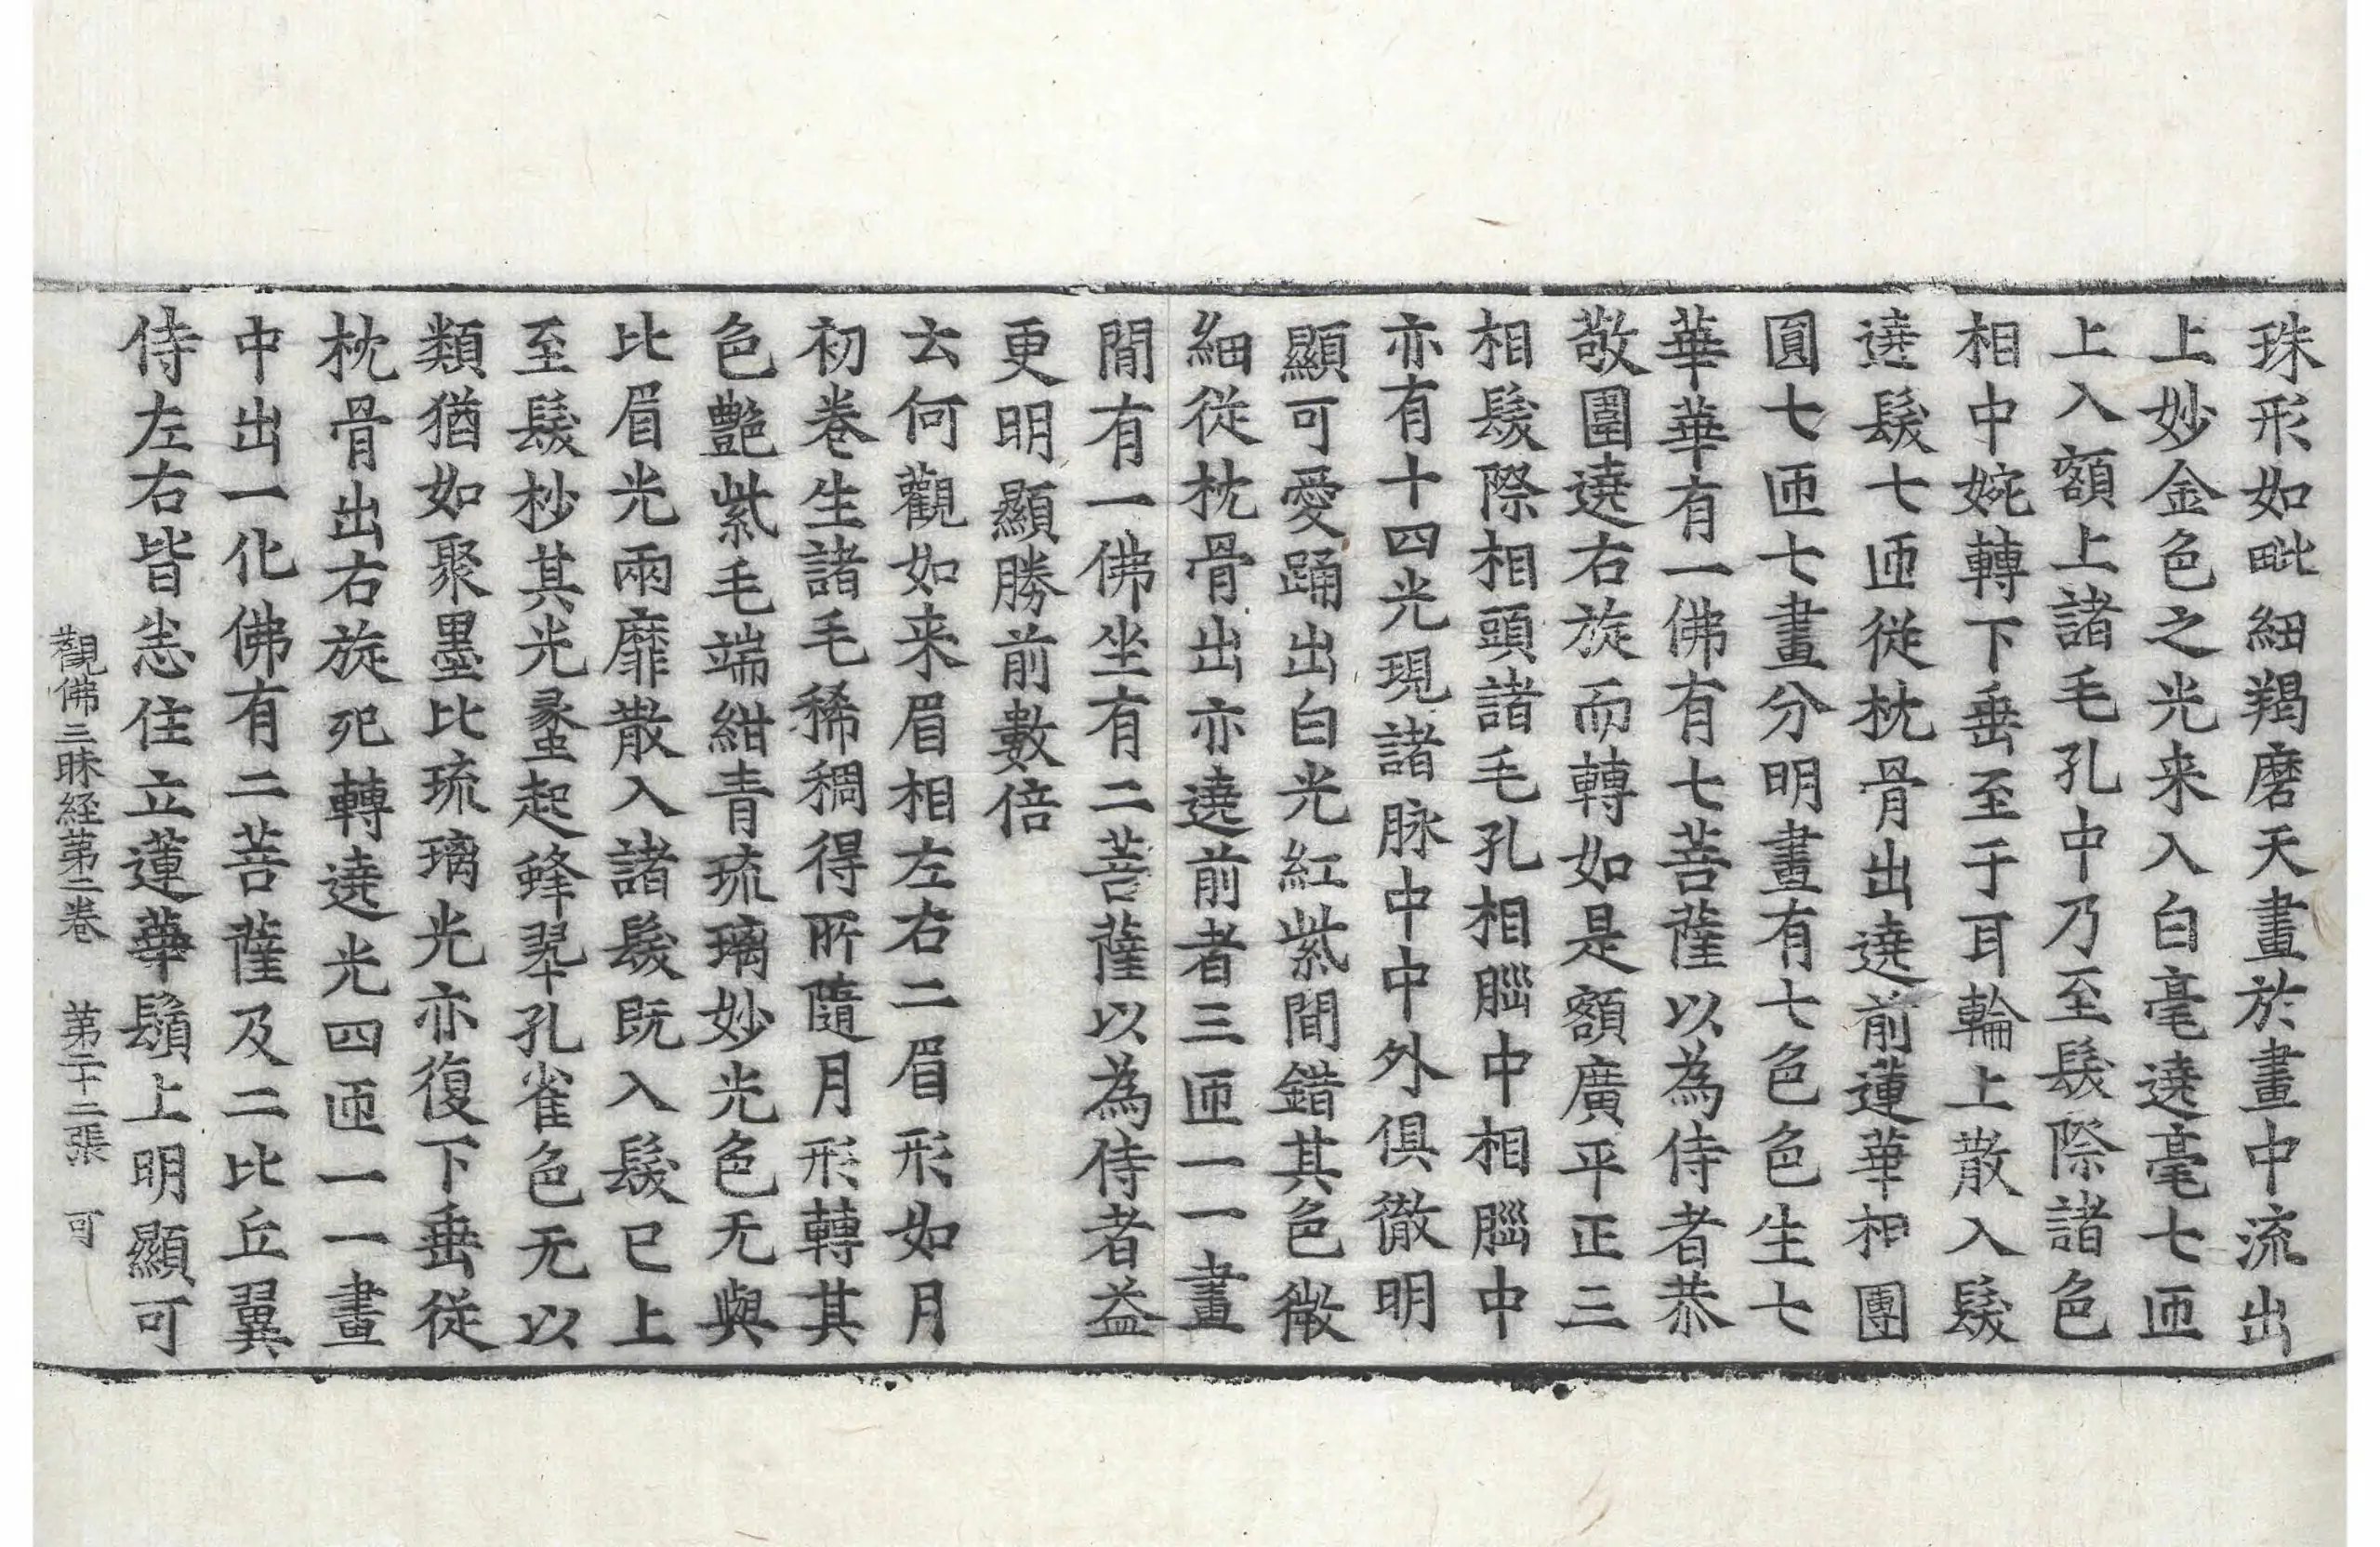 珠形如毗紐羯磨天畫於畫中流出
上妙金色之光来入白毫遶毫七匝
上入額上諸毛孔中乃至髮際諸色
相中婉轉下垂至于耳輪上散入髮
遶髮七匝從枕骨出遶前蓮華相團
圓七匝七畫分明畫有七色色生七
華華有一佛有七菩薩以為侍者恭
敬圍遶右旋而轉如是額廣平正三
相髮際相頭諸毛孔相腦中相腦中
亦有十四光現諸脉中中外俱徹明
顯可愛踊出白光紅紫間錯其色微
細從枕骨出亦遶前者三匝一一畫
間有一佛坐有二菩薩以為侍者益
更明顯勝前數倍
云何觀如来眉相左右二眉形如月
初卷生諸毛稀稠得所隨月形轉其
色艷紫毛端紺青琉璃妙光色无與
比眉光兩靡散入諸髮既入髮已上
至髮杪其光蝥起蜂翠孔雀色无以
類猶如聚墨比琉璃光亦復下垂從
枕骨出右旋宛轉遶光四匝一一畫
中出一化佛有二菩薩及二比丘翼
侍左右皆悉住立蓮華鬚上明顯可
觀佛三昧経苐二卷　苐二十二張　可